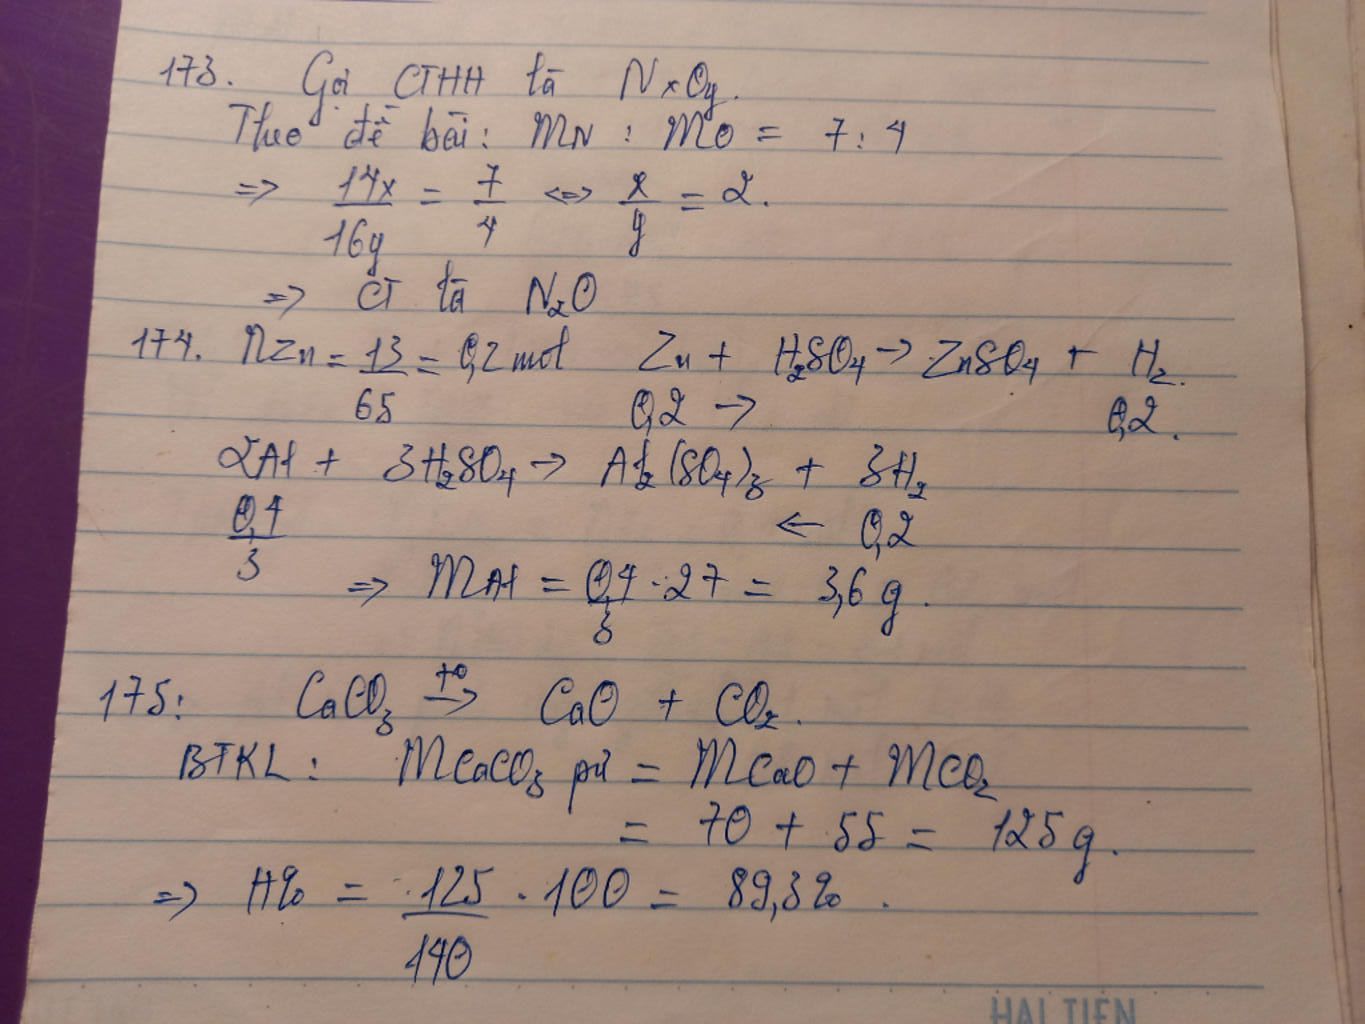 173. Gọi CTHH là NxOy.
Theo đề bài: mN : mO = 7:4
=> 14x/16y = 7/4 <=> x/y = 2.
=> CT là N2O
174. nZn = 13/65 = 0,2 mol Zn + H2SO4 → ZnSO4 + H2.
0,2 → 0,2.
2Al + 3H2SO4 → Al2(SO4)3 + 3H2
0,4/3 ← 0,2
=> mAl = 0,4/3 . 27 = 3,6 g.
175: CaCO3 t° → CaO + CO2.
BTKL: mCaCO3 pứ = mCaO + mCO2
= 70 + 55 = 125 g.
=> H% = 125/140 . 100 = 89,3%.
HẢI TIẾN